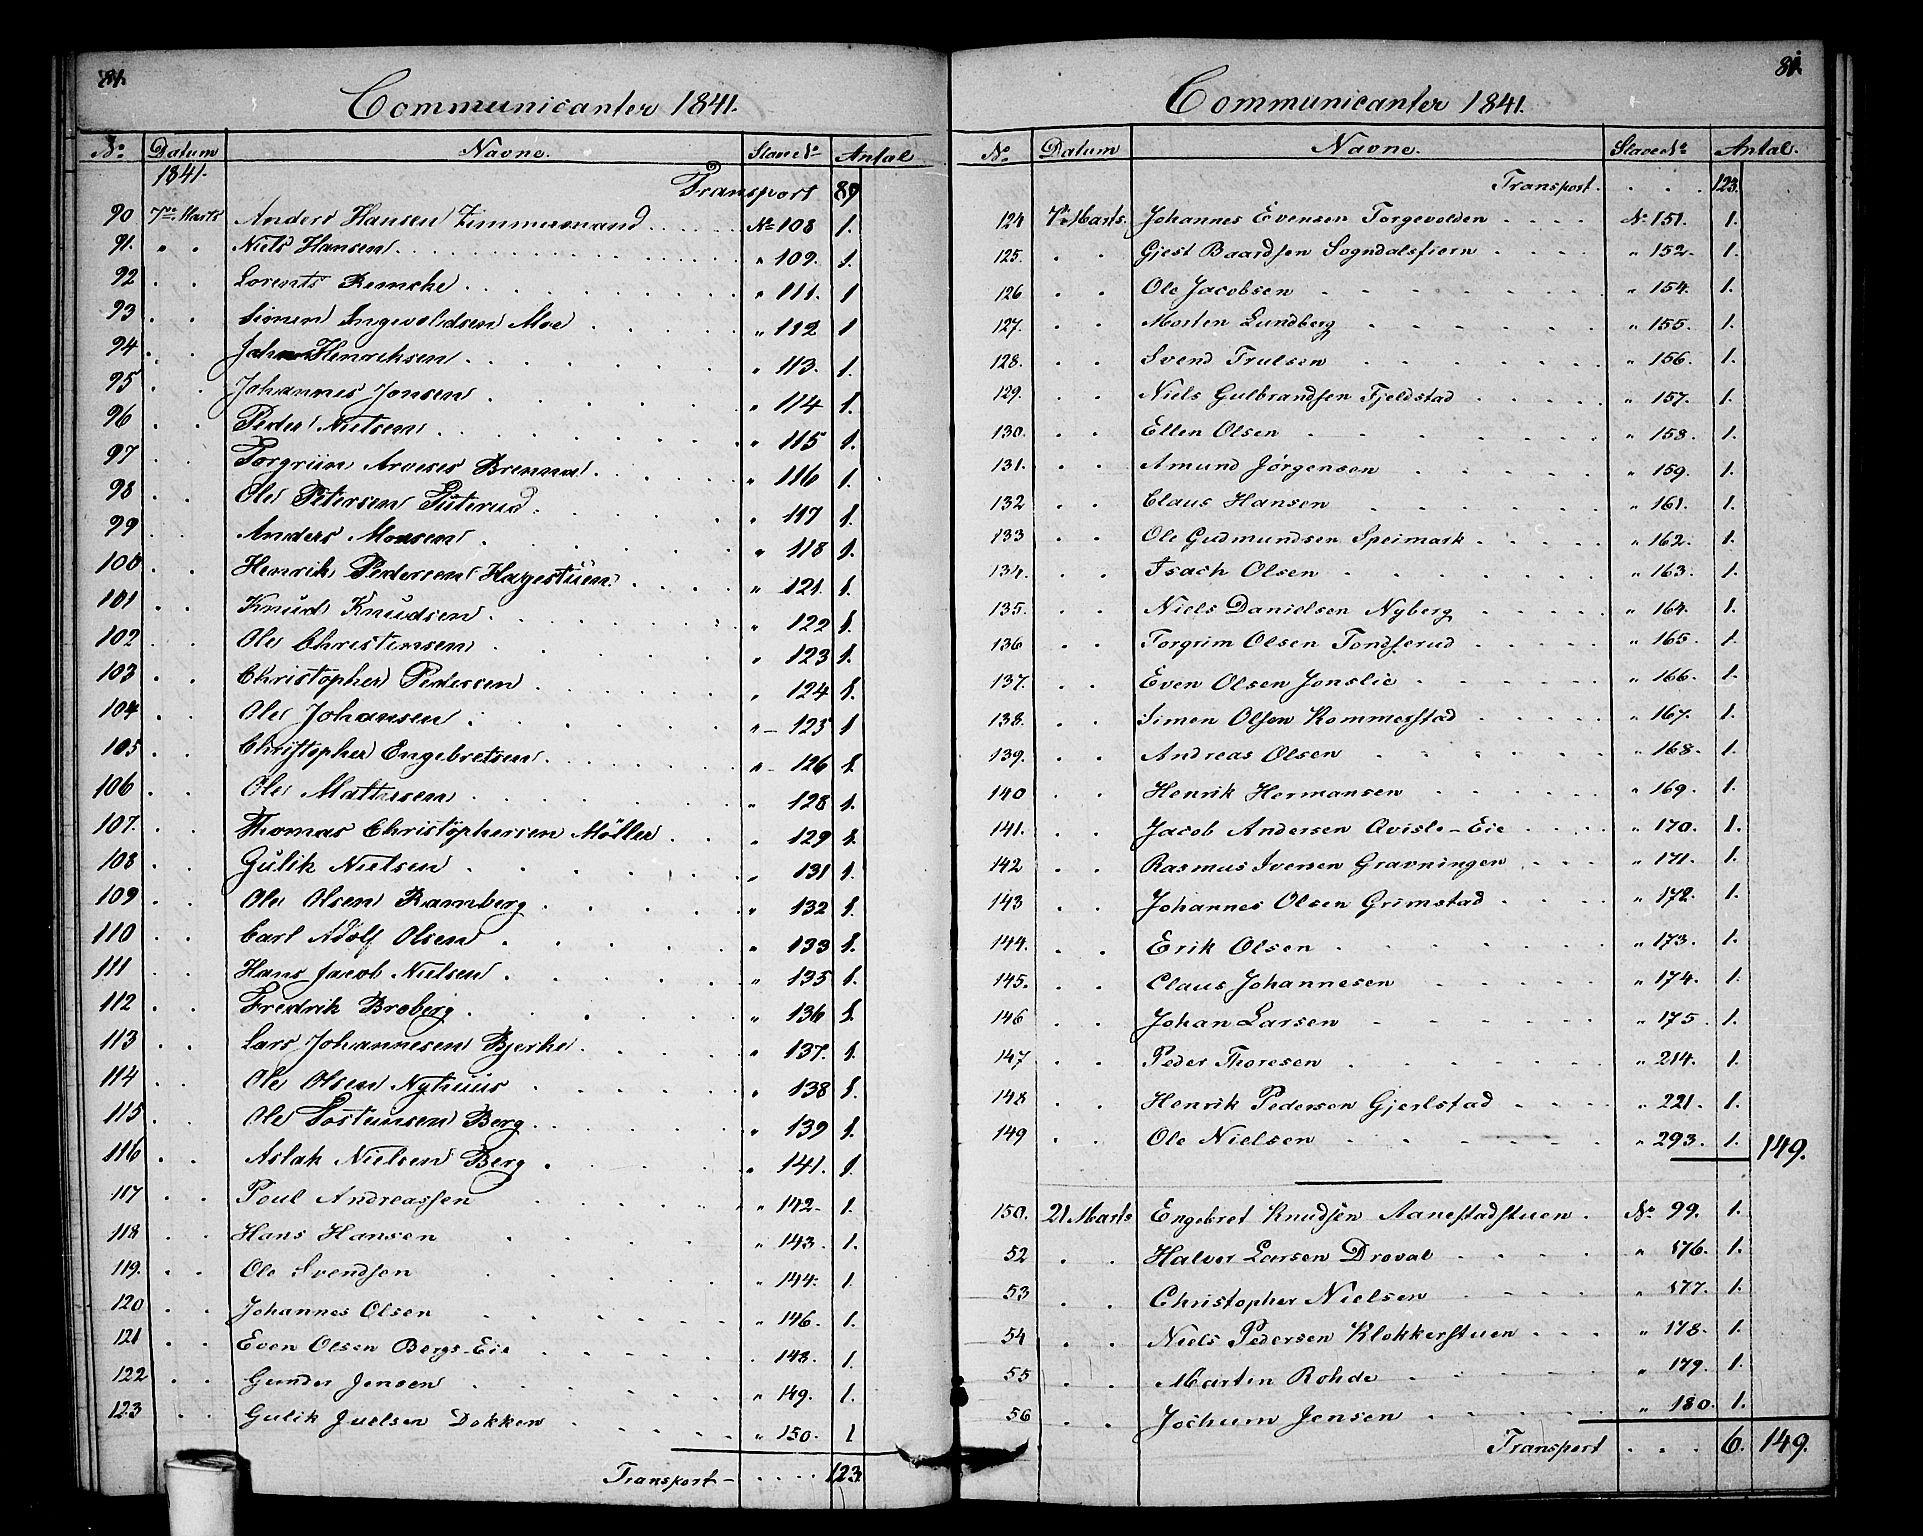 81.
Communicanter 1841.
No. Datum Navne. Slave No Antal
1841. Transport 89
90 7de Marts Anders Hansen Zimmermand No 108 1.
91. " . Niels Hansen " 109. 1.
92 . . Lorents Remche " 111. 1
93 . . Simen Ingevoldsen Moe " 112 1
94 . . Johan Henriksen " 113. 1.
95 . . Johannes Jonsen " 114 1.
96 . . Peder Nielsen " 115 1.
97 . . Torgriin Aroeses Brenna " 116 1.
98 . . Ole Petersen Sæterud " 117 1.
99 . . Anders Monsen " 118 1.
100 . . Henrik Pedersen Hagestuen " 121. 1.
101 . . Knud Knudsen " 122 1.
102 . . Ole Christensen " 123 1.
103 . . Christopher Pedersen " 124 1.
104 . . Ole Johansen " 125 1
105 . . Christopher Engebretsen " 126 1.
106 . . Ole Mathisen " 128 1.
107. . . Thomas Christophersen Möller " 129 1.
108 . . Gulik Nielsen " 131 1.
109 . . Ole Olsen Ramberg " 132 1.
110 . . Carl Adolf Olsen " 133 1.
111 . . Hans Jacob Nielsen " 135 1.
112 . . Fredrik Broberg " 136 1.
113 . . Lars Johannesen Bjerke " 137. 1.
114 . . Ole Olsen Nyhuus " 138 1.
115 . . Ole Tostensen Berg " 139 1.
116 . . Aslak Nielsen Berg " 141. 1.
117 . . Poul Andreassen " 142. 1.
118 . . Hans Hansen " 143. 1.
119. . . Ole Svendsen " 144. 1.
120 . . Johannes Olsen " 146. 1.
121 . . Even Olsen Bergs-Eie " 148. 1.
122 . . Gunder Jensen " 149. 1.
123 . . Gulik Juelsen Dokken " 150. 1
Transport 123
81.
Communicanter 1841.
No Datum Navne. Slave No Antal.
Transport. 123.
124 7de Marts. Johannes Evensen Torgevolden No 151. 1.
125. . . Gjest Baardsen Sogndalsfiern " 152. 1.
126 . . Ole Jacobsen " 154. 1.
127. . . Morten Lundberg " 155. 1.
128. . . Svend Trulsen " 156. 1.
129. . . Niels Gulbrandsen Fjeldstad " 157. 1.
130. . . Ellen Olsen " 158. 1.
131. . . Amund Jørgensen " 159. 1.
132 . . Claus Hansen " 161. 1.
133 . . Ole Gudmundsen Speimark " 162. 1.
134. . . Isach Olsen " 163. 1.
135. . . Niels Danielsen Nyberg " 164. 1.
136 . . Torgrim Olsen Tondserud " 165. 1.
137. . . Even Olsen Jonslie " 166. 1.
138. . . Simen Olsen Rommerstad " 167. 1.
139. . . Andreas Olsen " 168. 1.
140 . . Henrik Hermansen " 169. 1.
141. . . Jacob Andersen Qvisle-Eie " 170. 1.
142 . . Rasmus Iversen Gravningen " 171. 1.
143 . . Johannes Olsen Grimstad " 172. 1.
144. . . Erik Olsen " 173. 1.
145. . . Claus Johannesen " 174. 1.
146 . . Johan Larsen " 175. 1.
147 . . Peder Thoresen " 214. 1.
148 . . Henrik Pedersen Gjerlstad " 221. 1.
149 . . Ole Nielsen " 293. 1. 149.
150. 21 Marts Engebret Knudsen Aanestadstuen No 99. 1.
52 . . Halvor Larsen Droval " 176. 1.
53 . . Christopher Nielsen " 177. 1.
54 . . Niels Pedersen Klokkerstuen " 178. 1.
55 . . Martin Rohde " 179. 1.
56 . . Jochum Jensen " 180. 1.
Transport 6. 149.